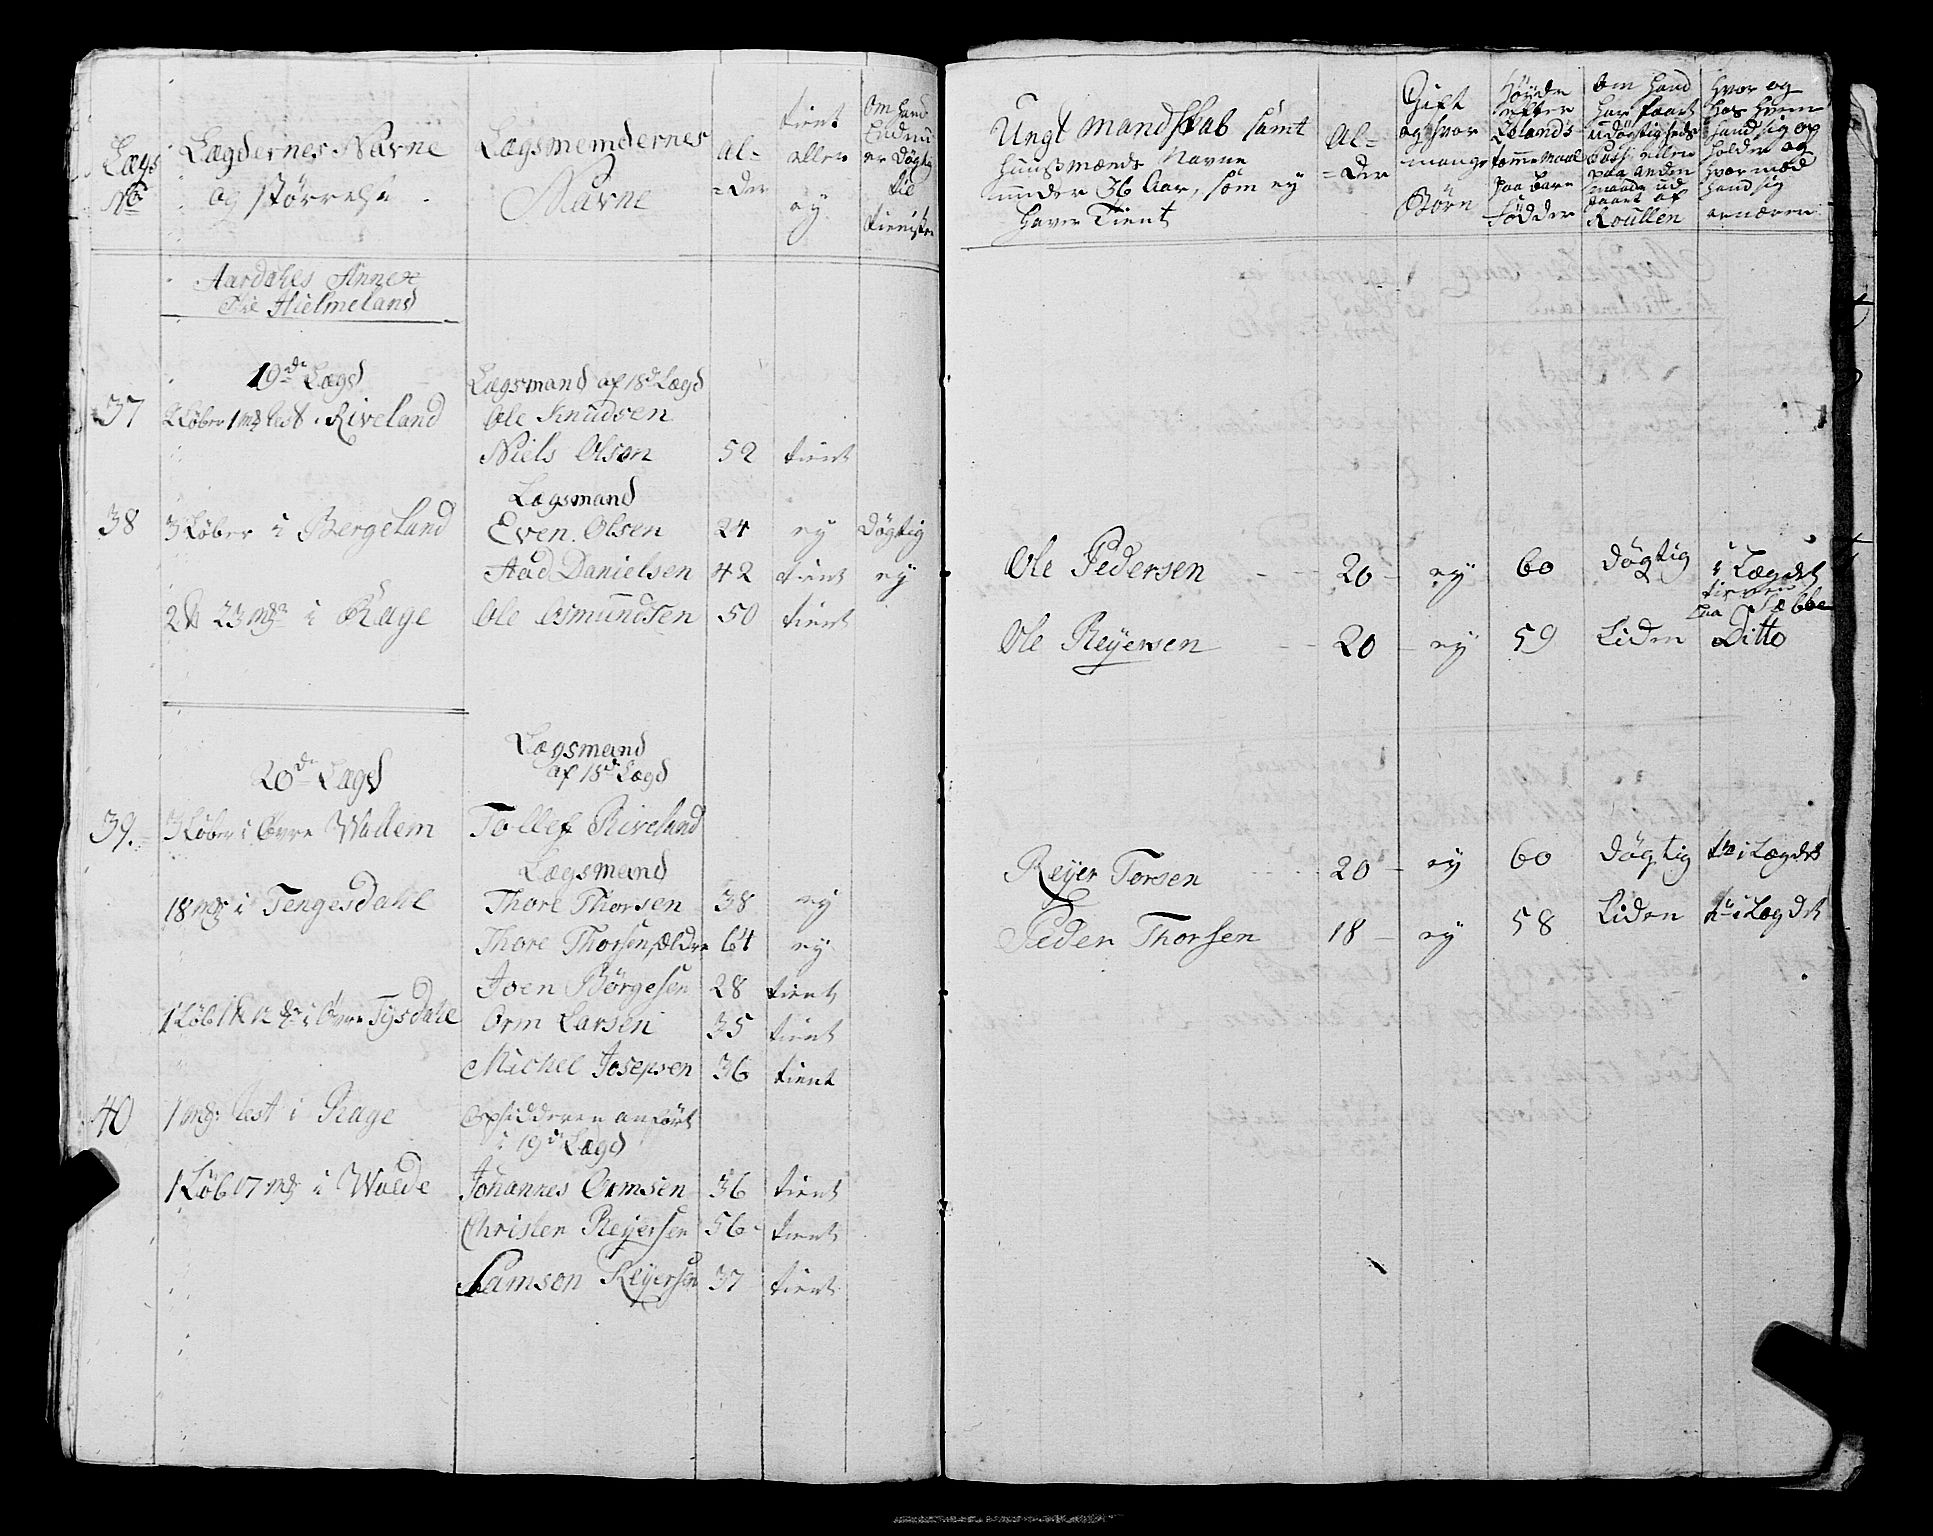 Lægs
No
Lægdernes Navne
og størrelse
Lægsmemdernes
Navne
Al-
=der
tient
eller
ey
Om hand
Endnu
er døgtig
til
tienisten
Aardahls Annex
til Hielmeland
19de Lægd
Lægsmand af 18de Lægd
37
Riveland
Ole Knudsen
Niels Olson 52 tient
Lægsmand
38 3 Løber i Bergeland Even Olsen 24 ey Døgtig
Aad Danielsen 42 tient ey
23 i Rage Ole Osmundsen 50 tient
20de Lægd
Lægsmand
af 18de Lægd
39. 3 Løber i Øvre Wadem Tollef Riveland
Lægsmand
18 mrk i Tengesdahl Thore Thorsen 38 ey
Thore Thorsen ældre 64 ey
Joen Børgesen 28 tient
1 Løb i Øvre Tysdahl Orm Larsen 35 tient
Michel Josepsen 36 tient
40 i Rage Opsidderen anført
i 19de Lægd
1 Løb 17 mrk i Walde Johannes Ormsen 36 tient
Christen Reyersen 56 tient
Samson Reyersen 37 tient
Ungt Mandskab samt
Huusmænds Navne
under 36 Aar, som ey
haver Tient
Al=
=der
Gift
og hvor
mange
Børn
Høyde
efter
Zelands
tomme Maal
paa bare
fødder
Om hand
har faaet
udørtigheds
Pass eller
paa anden
maade ud
gaaet af
Roullen
Hvor og
hos hvem
hand sig op
holder og
hvormed
hand sig
ernærer
Ole Pedersen 20 ey 60 Døgtig i Lægdet
tienner
paa
Ole Reyersen 20 ey 59 Liden Ditto
Reyer Torsen 20 ey 60 Døgtig i Lægdet
Peder Thorsen 18 ey 58 Liden i Lægdet